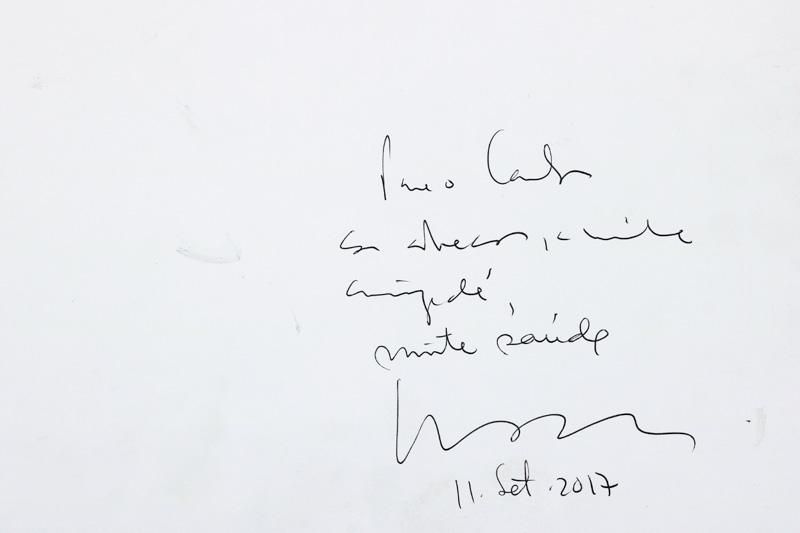 Para o Carlos
um abraço, a minha
amizade,
muita saúde
11. Set. 2017